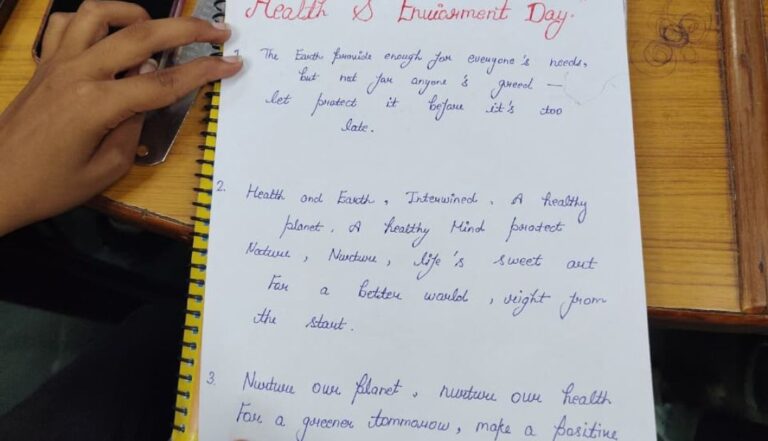 Health & Enviorment Day.
1. The Earth provide enough for everyone's needs,
but not for anyone's greed —
let protect it before it's too
late.
2. Health and Earth, Interwined. A healthy
planet. A healthy Mind protect
Nature, Nurture, life's sweet art
For a better world, right from
the start.
3. Nurture our planet, nurture our health
For a greener tommarow, make a positive